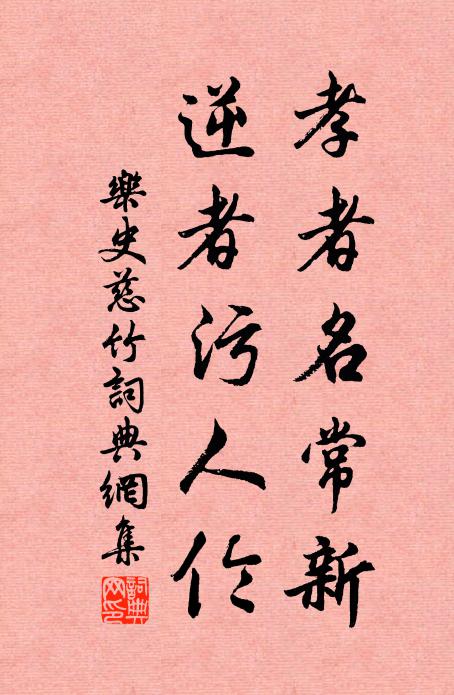 孝者名常新
逆者污人伦
樂史慈竹詞典網集
詞典網印